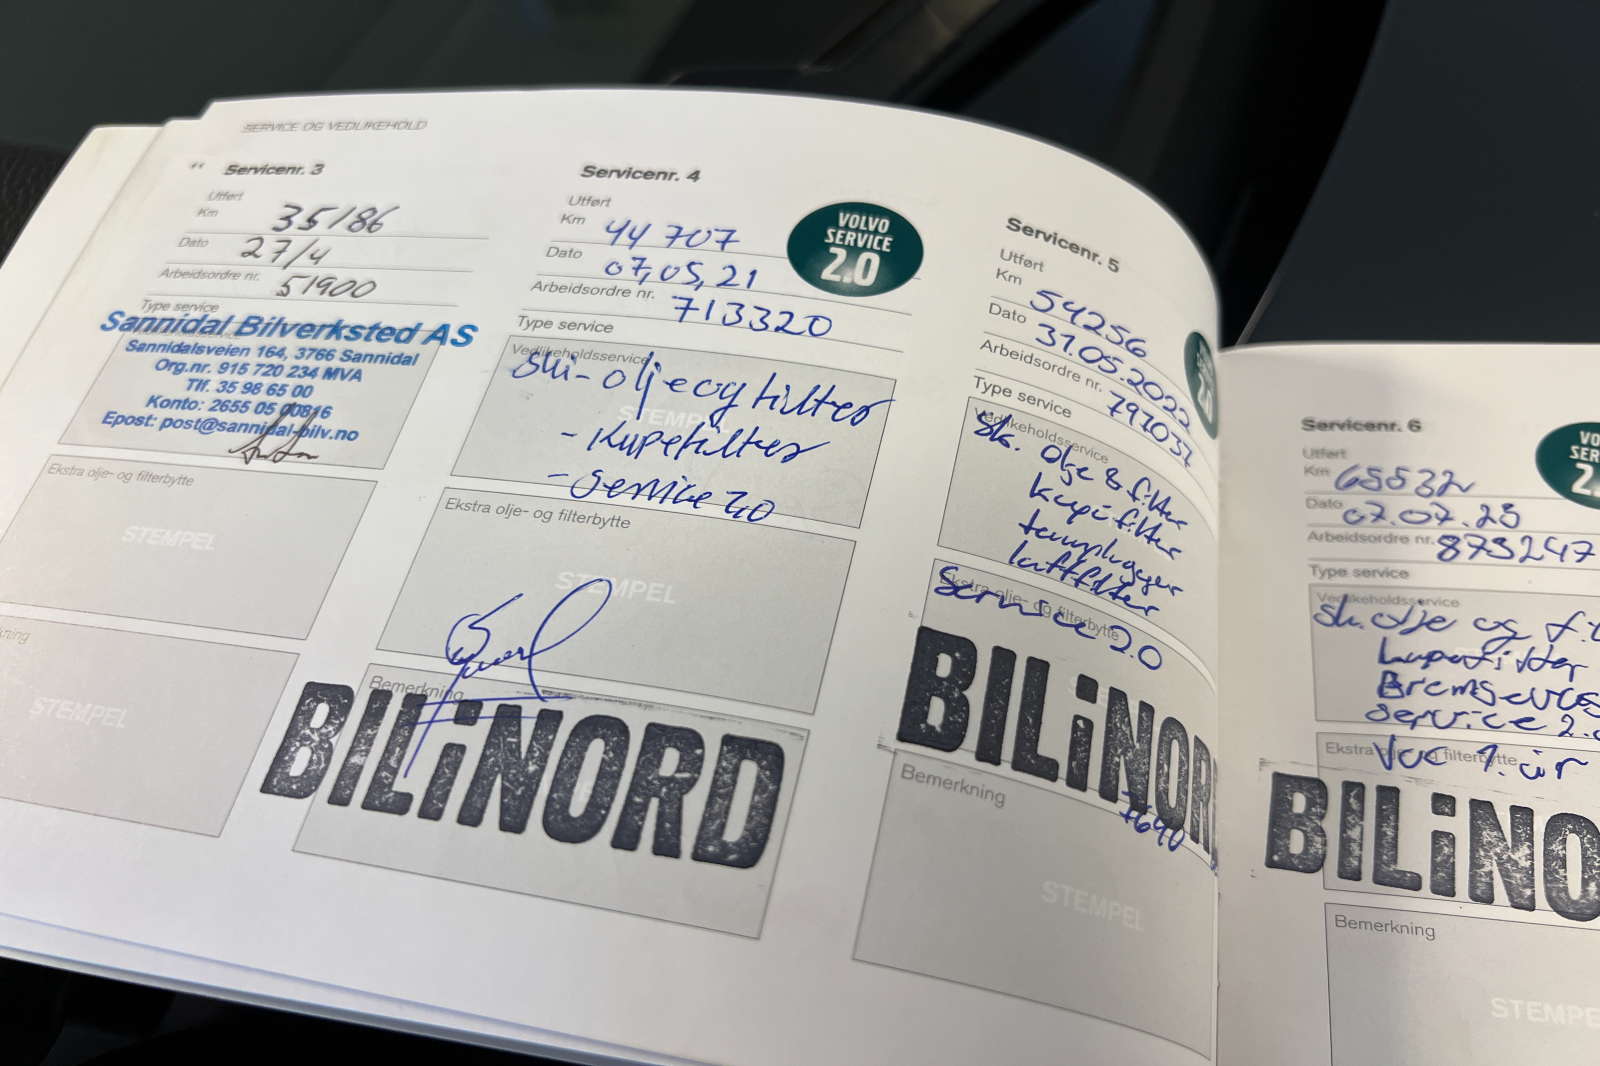 SERVICE OG VEDLIKEHOLD
Servicenr. 3
Utført
Km 35186
Dato 27/4
Arbeidsordre nr. 51900
Type service
Sannidal Bilverksted AS
Sannidalsveien 164, 3766 Sannidal
Org.nr. 915 720 234 MVA
Tlf. 35 98 65 00
Konto: 2655 05 00816
Epost: post@sannidal-bilv.no
Ekstra olje- og filterbytte
STEMPEL
STEMPEL
Servicenr. 4
Utført
Km 44 707
Dato 07,05,21
Arbeidsordre nr. 713320
VOLVO
SERVICE
2.0
Type service
Vedlikeholdsservice
STEMPEL
olje og filter
- Kupefilter
- Service 2,0
Ekstra olje- og filterbytte
STEMPEL
Bemerkning
BILiNORD
Servicenr. 5
Utført
Km 54256
Dato 31.05.2022
Arbeidsordre nr. 797037
2.0
Type service
Vedlikeholdsservice
Sk. olje & filter
kupefilter
tennplugger
luftfilter
Ekstra olje- og filterbytte
Service 2.0
BILiNOR
Bemerkning
STEMPEL
Servicenr. 6
Utført
Km 65532
Dato 07.07.23
Arbeidsordre nr. 873247
Type service
Vedlikeholdsservice
Sk. olje og
kupefilter
Service 2.
Ekstra olje- og filterbytte
BILiNO
Bemerkning